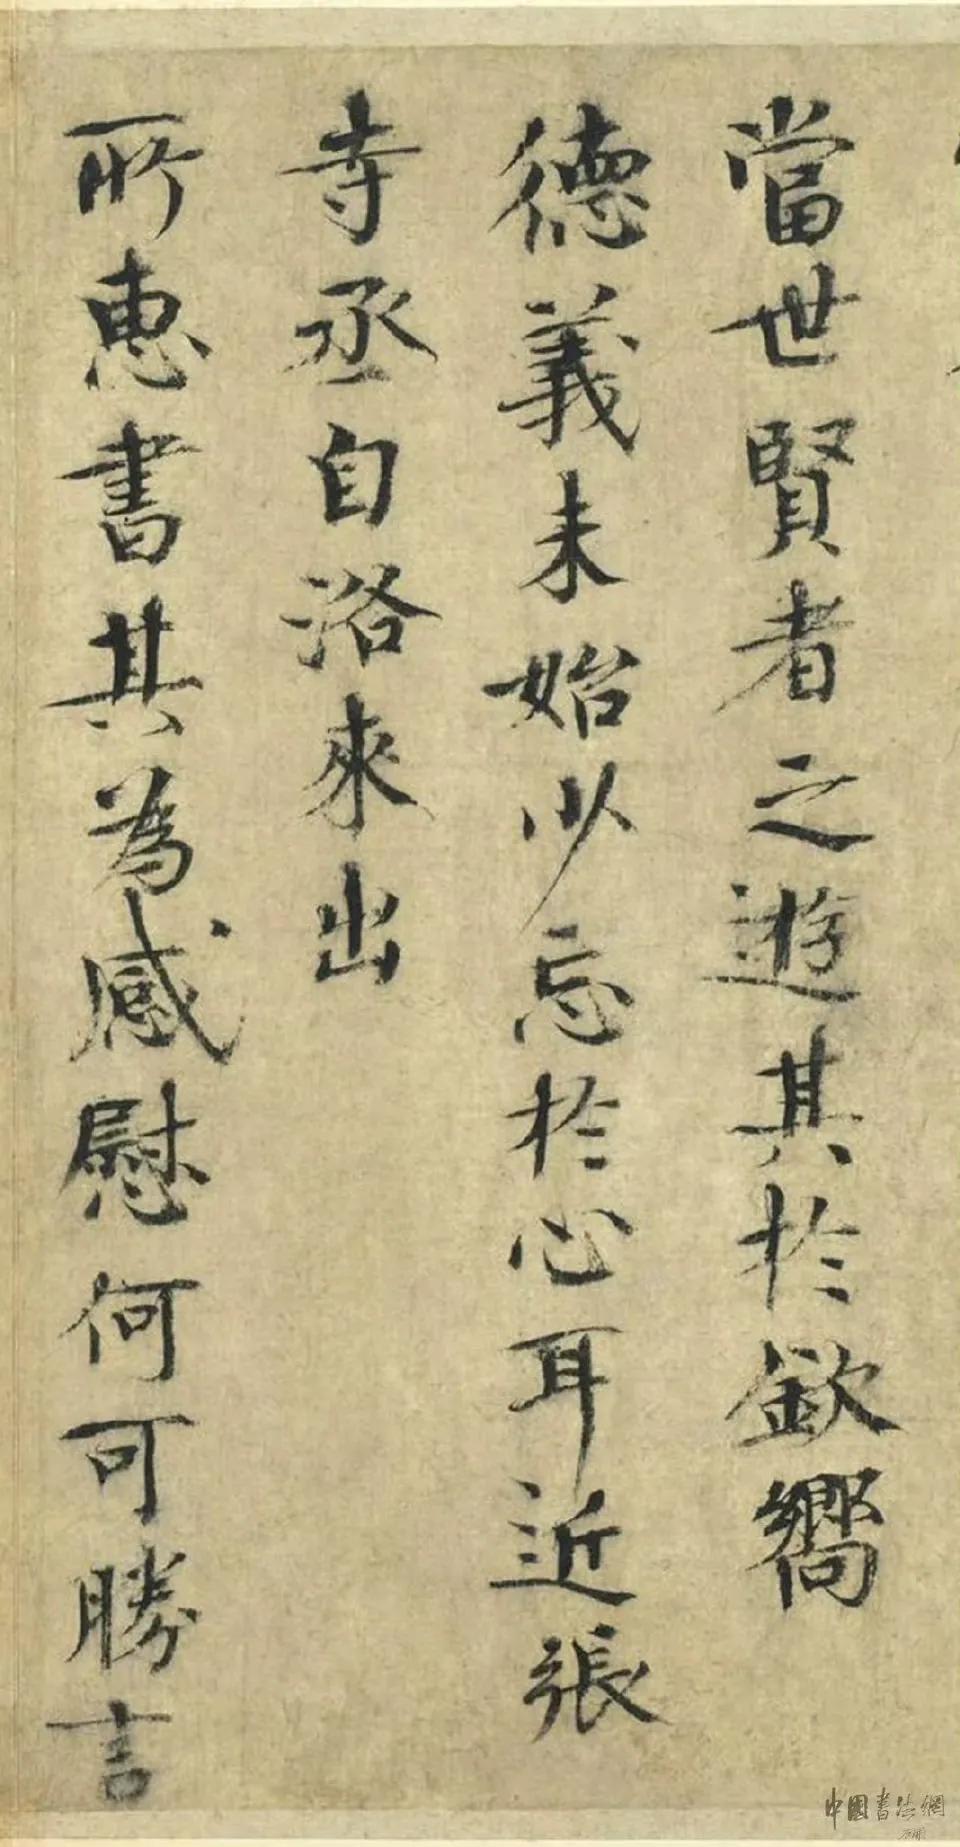 當世賢者之遊其於欽嚮
德義未始以忘於心耳近張
寺丞自洛來出
所惠書其為感慰何可勝言
中國書法網